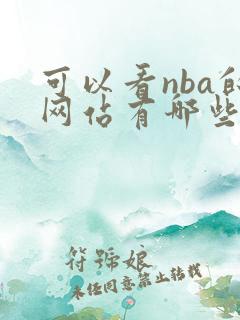 可以看nba的
网站有哪些
符号娘
未经同意禁止转载